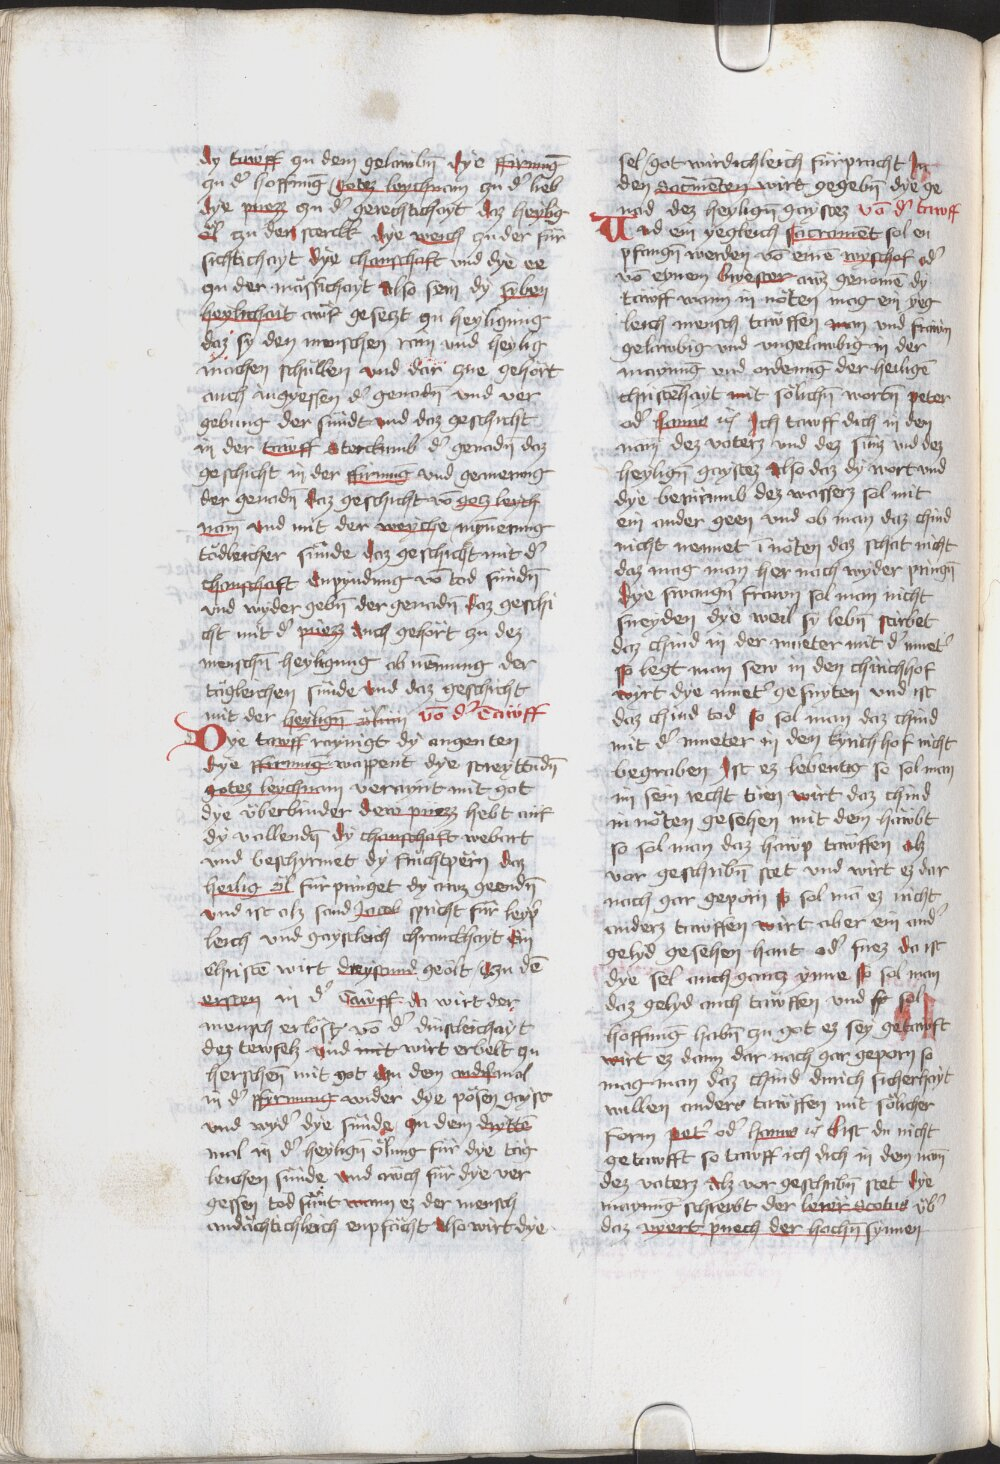 dy tawff zu dem gelaubn̄ dye ffirmūg
zu dˀ hoffnūg gotez leychnam zu dˀ lieb
dye puezz zu dˀ gerechtichayt daz heylig
öl zu der sterckh dye weich zu der für
sichtichayt dye chanschaft vnd dye ee
zu der mässichayt Also sein dy syben
heylichait auf gesetzt zu heyligung
daz sy den menschen rain vnd heylig
machen schüllen vnd dar zue gehört
auch angyessen dˀ genadn̄ vnd ver
gebung der sündt vnd daz geschicht
in der tawff Sterckumb dˀ genadn̄ daz
geschicht in der ffirmūg vnd gemerung
der genadn̄ daz geschicht vō gotz leych
nam vnd mit der weyche mynerung
tödleicher sünde daz geschicht mit dˀ
chanschaft Enpyndung vō tod sündn̄
vnd wyder gebn̄ der genadn̄ daz geschi
cht mit dˀ puezz Auch gehört zu dez
menschn̄ heyligung ab nemung der
tägleichen sünde vnd daz geschicht
mit der heylign̄ ölung vō dˀ Tawff
Dye tawff raynigt dy angenten
dye ffirmūg wappent dye streyttudn̄
gotez leychnam veraynt mit got
dye überbinder dew puezz hebt auf
dy vallendn̄ dy chanschaft webart
vnd beschyrmet dy fruchtpern daz
heilig öl für pringet dy auz geendn̄
vnd ist alz sand Jacob spricht für leyp
leich vnd gaystleich chranckhayt Ein
Christē wirt dreystund geölt Zu dē
ersten in dˀ Tawff da wirt der
mensch erlöst vō dˀ dinstleichayt
dez tewfelz vnd mit wirt erbelt zu
herschen̄ mit got Zu dem andˀmal
in dˀ ffirmung wider dye pösen gayst
vnd wydˀ dye sünde Zu dem drittē
mal in dˀ heylign̄ ölung für dye täg
leichen sünde vnd auch für dye ver
gessen tod sünt wann ez der mensch
andächtichleich enpfächt Also wirt dye
sel got wirdichleich fürpracht In
den sacmēten wirt gegebn̄ dye ge
nad dez heylign̄ gaystez Vō dˀ tawff
Vnd ein yegleich sacramēt sol en
pfangn̄ werden vō einē wyschof odˀ
vō eynem briester auz genomē dy
tawff wann in nöten mag ein yeg
leich mensch tawffen man vnd frawn
gelawbig vnd vngelawbig in der
maynung vnd ordenūg der heiligē
christēhayt mit sölichn̄ wortn̄ peter
odˀ hanns ich tawff dich in den
nam̄ dez vaterz vnd dez sūnz vnd dez
heylign̄ gaystez Also daz dy wort vnd
dye berürumb dez wasserz sol mit
ein ander geen vnd ob man daz chind
nicht nennet ī nöten daz schat nicht
daz mag man her nach wyder pringn̄
Dye swangˀn frawn sol man nicht
sneyden dye weil sy lebn̄ stirbet
daz chind in der mueter mit dˀ muetˀ
so legt man sew in den chirichhof
wyrt dye muetˀ gesnyten vnd ist
daz chind tod So sol man daz chind
mit dˀ mueter in den kyrich hof nicht
begraben Ist ez lebentig so sol man
im sein recht tuen wirt daz chind
in nöten gesehen mit dem hawbt
so sol man daz hawp tawffen alz
vor geschribn̄ stet vnd wirt ez dar
nach gar geporn so sol mā ez nicht
anderz tawffen wirt aber ein andˀ
gelyd gesehen hant odˀ fuez da ist
dye sel auch gantz ynne so sol man
daz gelyd auch tawffen vnd sol
hoffnūg habn̄ zu got ez sey getawft
wirt ez dann dar nach gar geporn so
mag man daz chind durich sicherhayt
willen anders tawffen mit sölicher
form petˀ odˀ hanns bist du nicht
getawfft so tawff ich dich in dem nam̄
dez vaterz alz vor geschribn̄ stet dye
maynūg schreibt der lerer Scotus übˀ
daz vyert puech der hochn̄ synnen